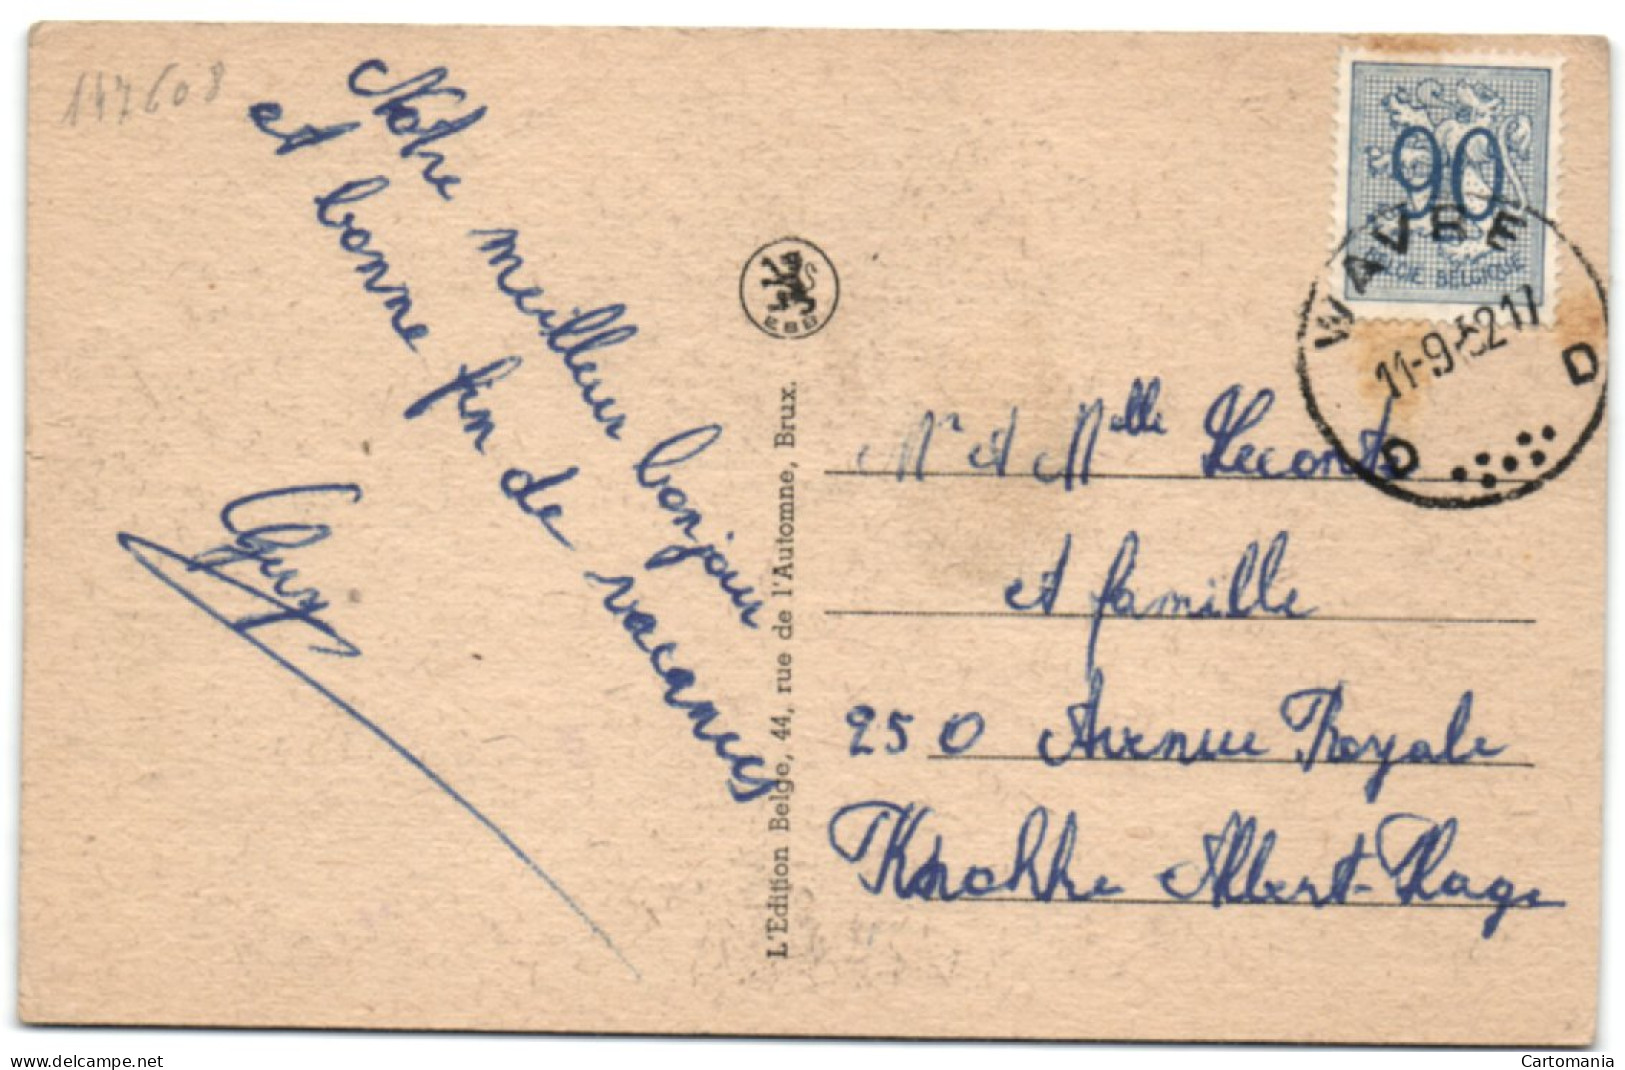 147608
Notre meilleur bonjour
et bonne fin de vacances
Guy
EBD
L'Edition Belge, 44, rue de l'Automne, Brux.
90
BELGIE BELGIQUE
WAVRE
11-9-52 17
D D
Mr et Melle Lecomte
et famille
250 Avenue Royale
Knokke Albert-Plage
www.delcampe.net
Cartomania